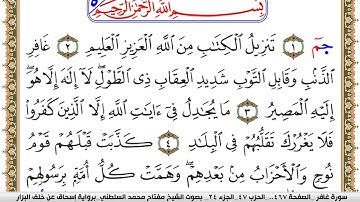 بِسْمِ ٱللَّهِ ٱلرَّحْمَٰنِ ٱلرَّحِيمِ
حمٓ ١ تَنزِيلُ ٱلْكِتَٰبِ مِنَ ٱللَّهِ ٱلْعَزِيزِ ٱلْعَلِيمِ ٢ غَافِرِ
ٱلذَّنۢبِ وَقَابِلِ ٱلتَّوْبِ شَدِيدِ ٱلْعِقَابِ ذِى ٱلطَّوْلِ لَآ إِلَٰهَ إِلَّا هُوَ
إِلَيْهِ ٱلْمَصِيرُ ٣ مَا يُجَٰدِلُ فِىٓ ءَايَٰتِ ٱللَّهِ إِلَّا ٱلَّذِينَ كَفَرُوا۟
فَلَا يَغْرُرْكَ تَقَلُّبُهُمْ فِى ٱلْبِلَٰدِ ٤ كَذَّبَتْ قَبْلَهُمْ قَوْمُ
نُوحٍ وَٱلْأَحْزَابُ مِنۢ بَعْدِهِمْ وَهَمَّتْ كُلُّ أُمَّةٍۭ بِرَسُولِهِمْ
سورة غافر_ الصفحة ٤٦٧.. الحزب ٤٧_ الجزء ٢٤_ بصوت الشيخ مفتاح محمد السلطني_ برواية إسحاق عن خلف البزار